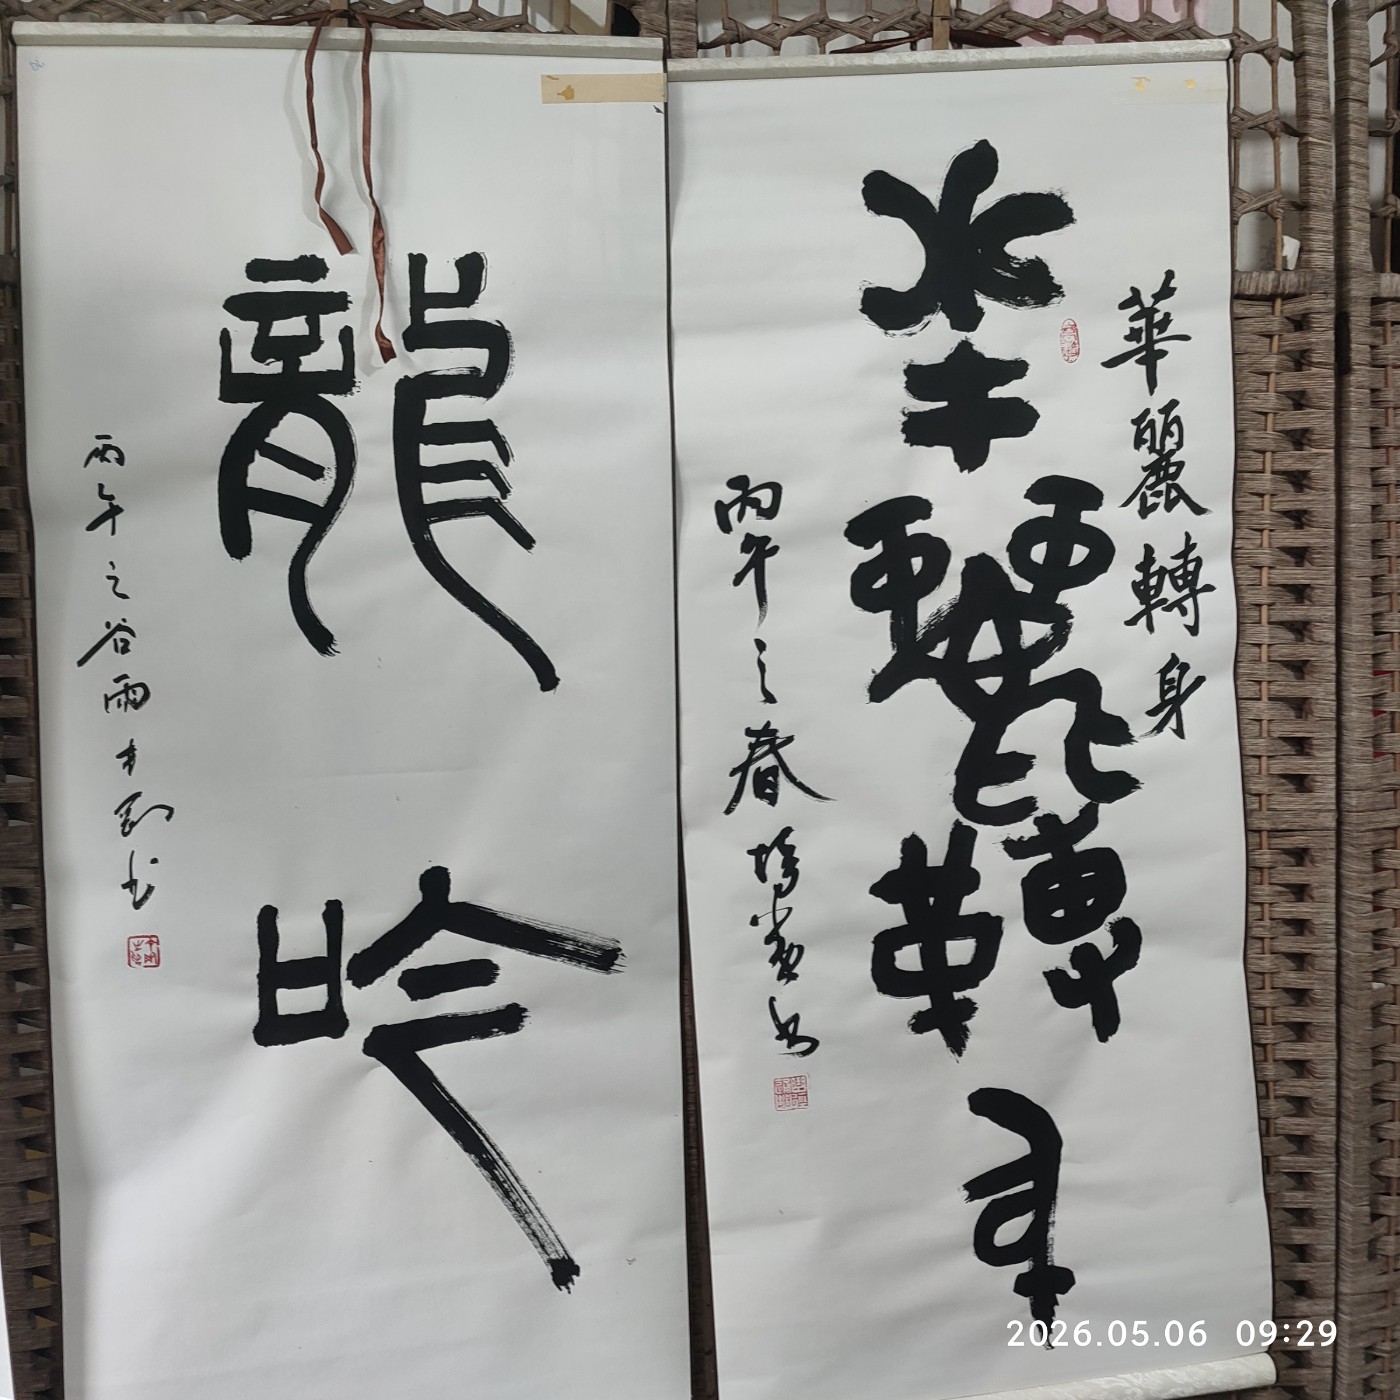 華麗轉身
華麗轉身
丙午之春
龍吟
丙午之谷雨
2026.05.06 09:29